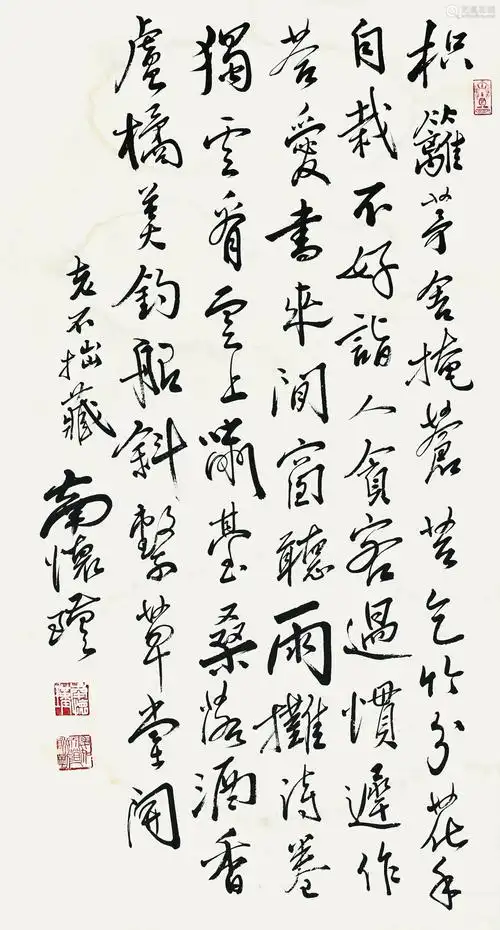 枳籬茅舍掩蒼苔乞竹分花手
自栽不好詣人貪客過慣遲作
荅愛書來間窗聽雨攤詩卷
獨云看云上嘯臺桑落酒香
盧橘美釣船斜繫草堂開
老不拙藏 南懷瑾